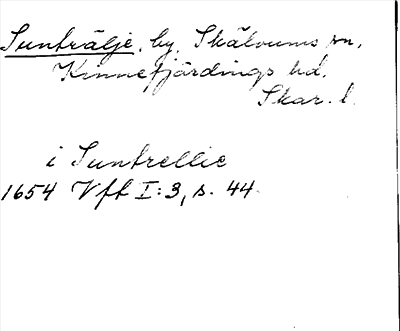 Sunträlje, by, Skälvums sn,
Kinnefjärdings hd.
Skar. l.
i Suntrellie
1654 Vft I:3, s. 44.